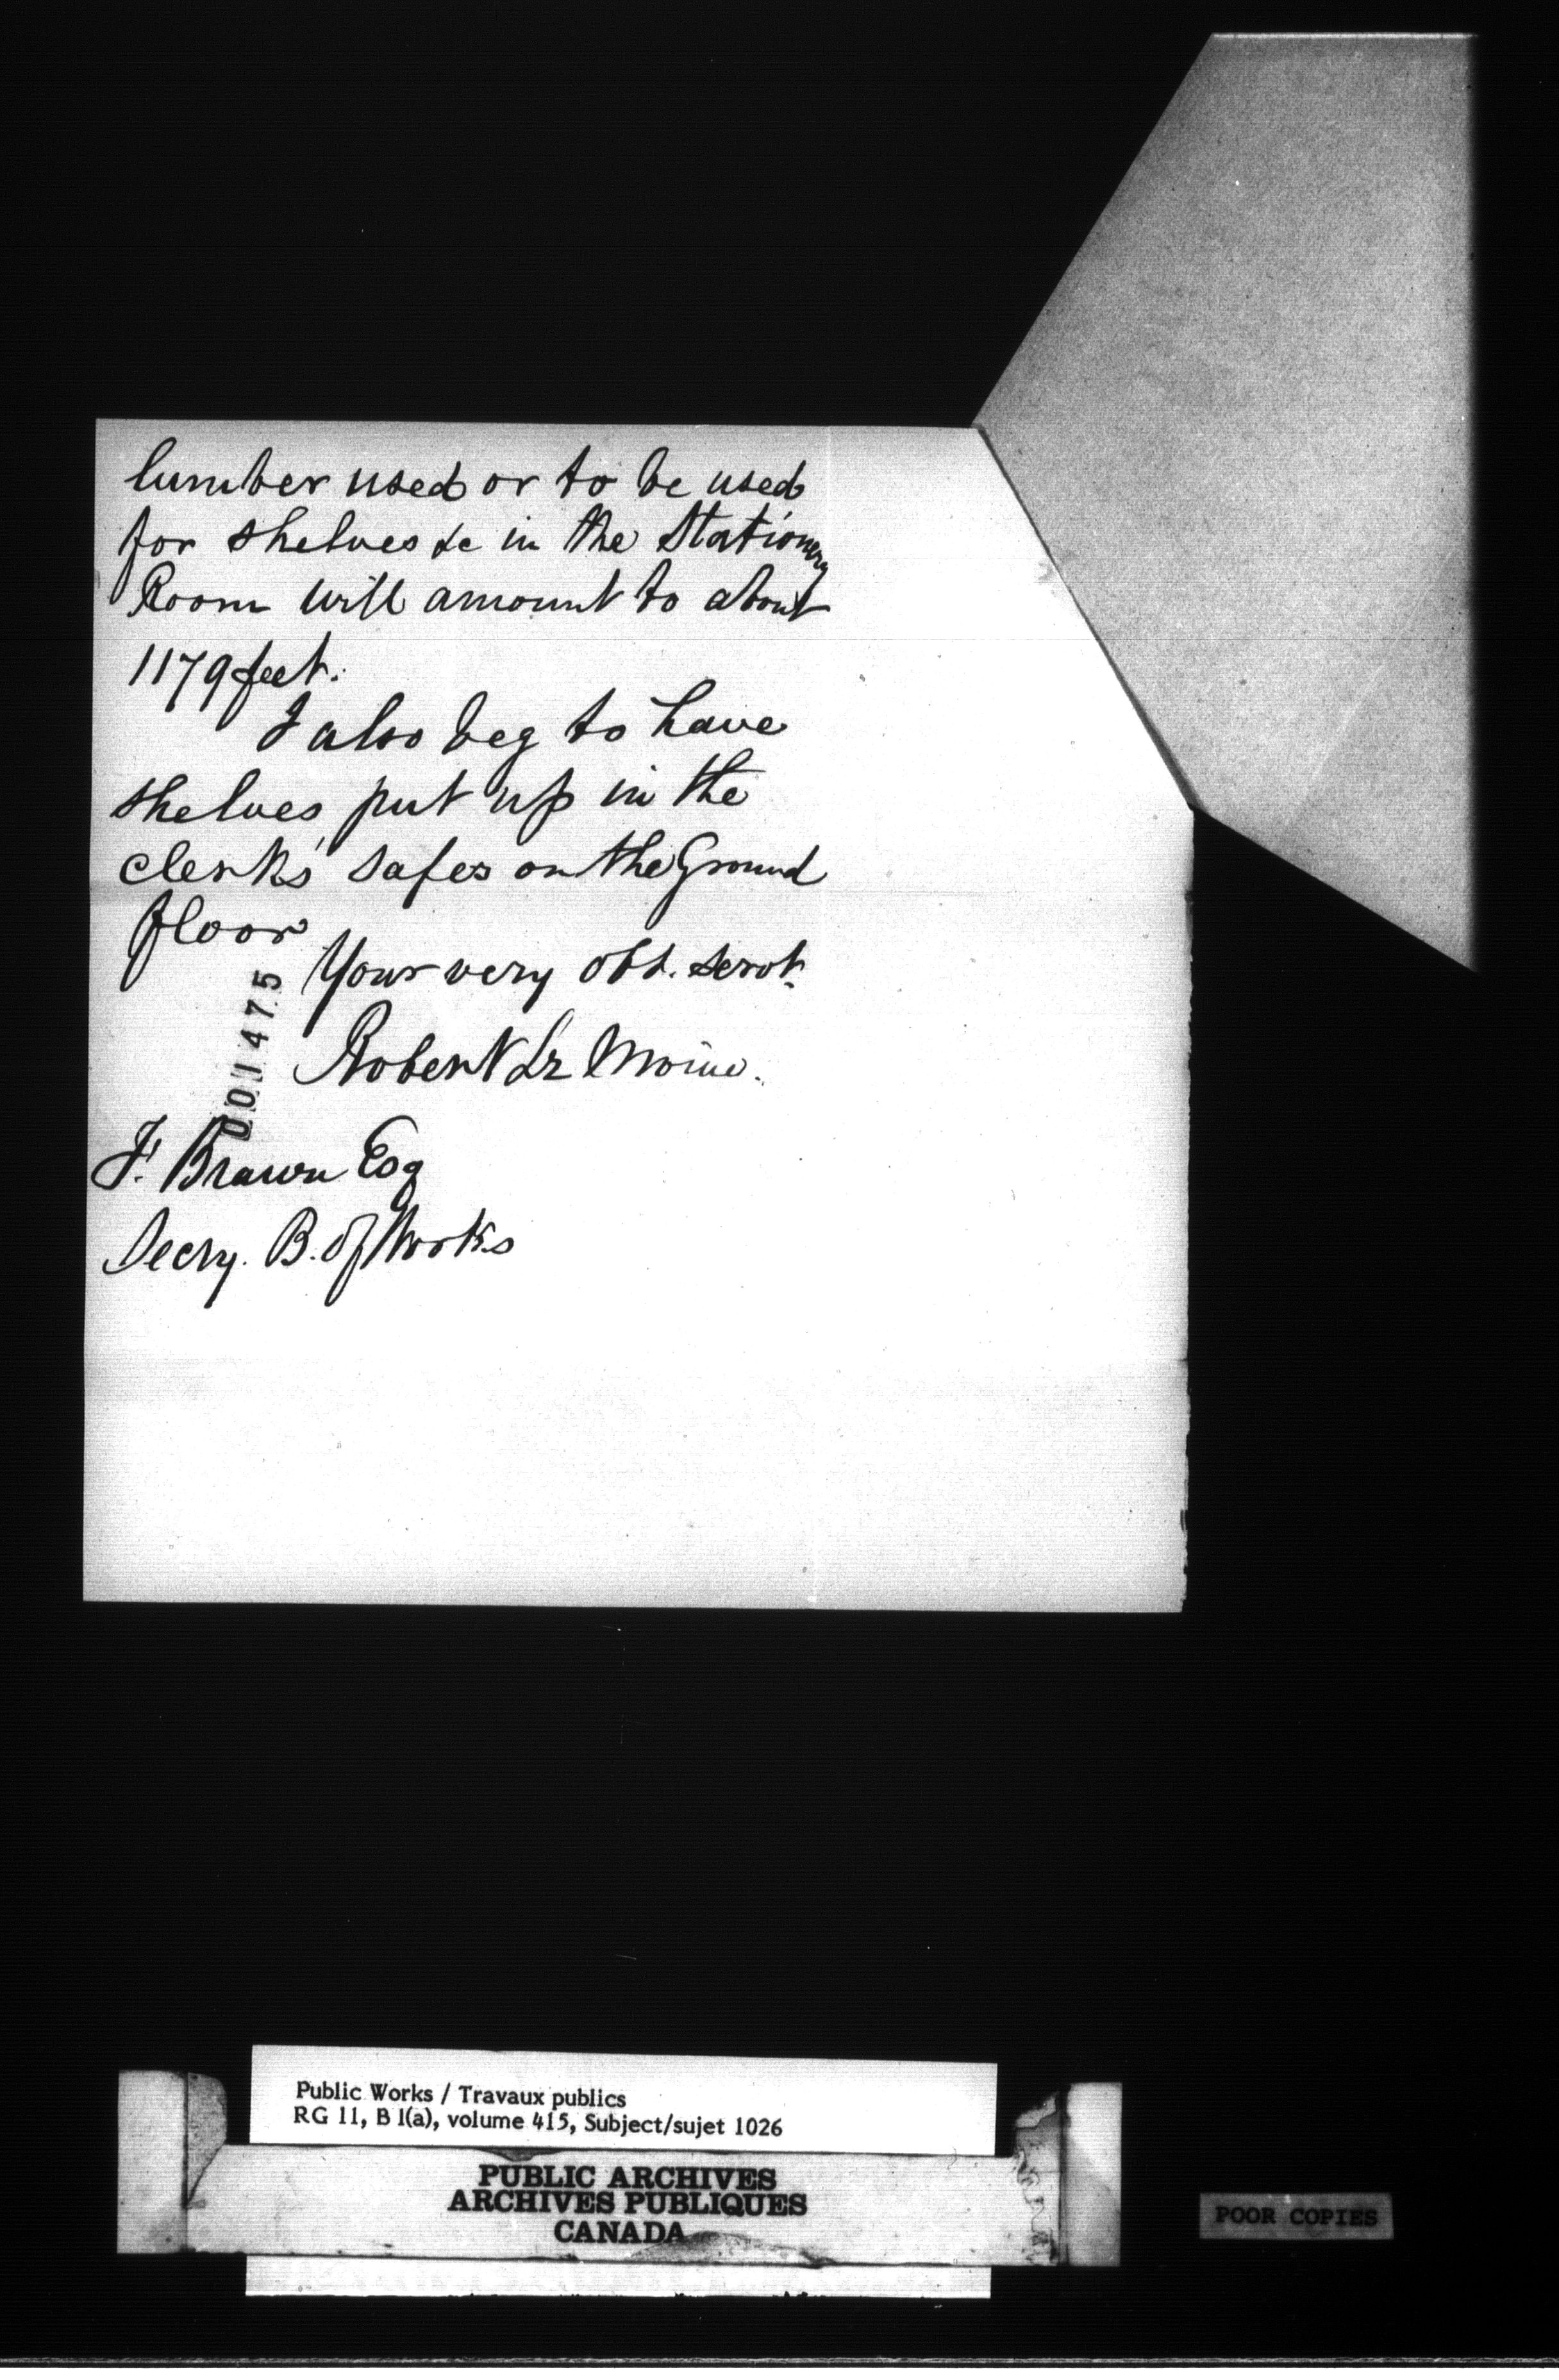 lumber used or to be used
for shelves &c in the Stationery
Room will amount to about
1179 feet.
I also beg to have
shelves put up in the
clerks' safes on the Ground
floor
Your very obt. servt.
Robert Le Moine.
001475
F. Braun Esq
Secry. B. of Works
Public Works / Travaux publics
RG 11, B 1(a), volume 415, Subject/sujet 1026
PUBLIC ARCHIVES
ARCHIVES PUBLIQUES
CANADA
POOR COPIES